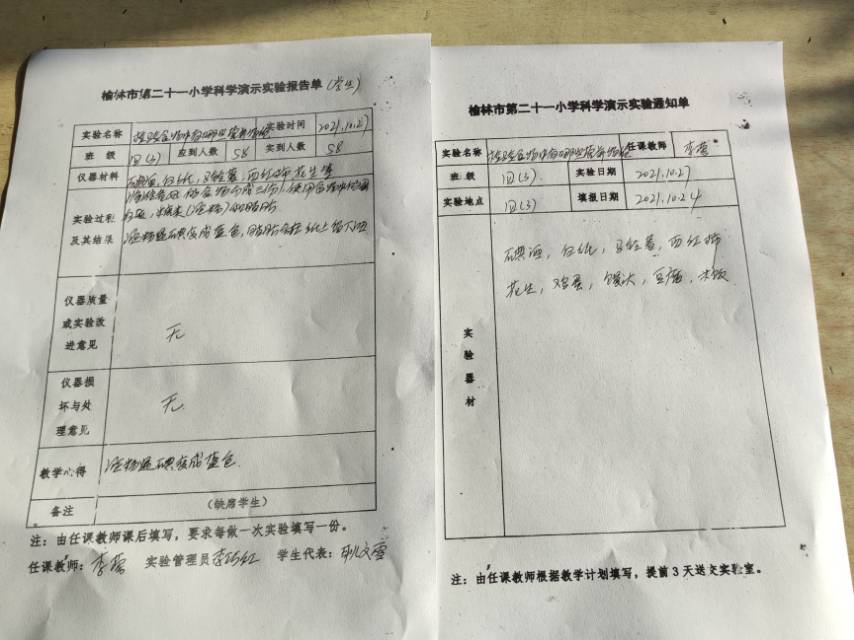 榆林市第二十一小学科学演示实验报告单(学生)
实验名称 实验时间 2021.10.27
班 级 四(3) 应到人数 58 实到人数 58
仪器材料 碘酒,白纸,马铃薯,西红柿 花生等
实验过程
及其结果
淀粉遇碘变成蓝色,脂肪会在纸上留下
仪器质量
或实验改
进意见
无
仪器损
坏与处
理意见
无
教学心得 淀粉遇碘变成蓝色
备注 (缺席学生)
注:由任课教师课后填写,要求每做一次实验填写一份。
任课教师: 实验管理员 学生代表:
榆林市第二十一小学科学演示实验通知单
实验名称 任课教师
班 级 四(3) 实验日期 2021.10.27
实验地点 四(3) 填报日期 2021.10.24
实验器材
碘酒,白纸,马铃薯,西红柿
花生,鸡蛋,馒头,豆腐,米饭
注:由任课教师根据教学计划填写,提前3天送交实验室。